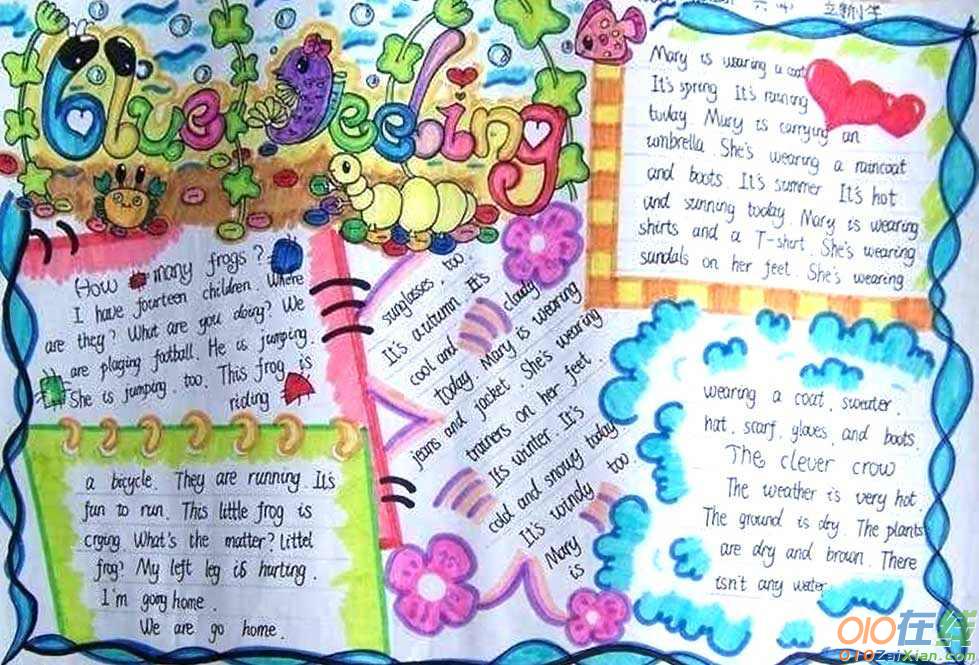 Blue Feeling
How many frogs?
I have fourteen children. Where
are they? What are you doing? We
are plaging football. He is jumping.
She is jumping, too. This frog is
riding
a bicycle. They are running. It's
fun to run. This little frog is
crying. What's the matter? Littel
frog? My left leg is hurting.
I'm going home.
We are go home.
Mary is wearing a coat
It's spring It's raining
today. Mary is carrying an
umbrella. She's wearing a raincoat
and boots. It's summer It's hot
and sunning today. Mary is wearing
shirts and a T-shirt. She's wearing
sandals on her feet. She's wearing
sunglasses, too.
It's autumn. It's
cool and cloudy
today. Mary is wearing
jeans and jacket. She's wearing
trainers on her feet.
It's winter. It's
cold and snowy today
It's windy too.
Mary
is
wearing a coat, sweater,
hat, scarf, gloves, and boots.
The clever crow
The weather is very hot.
The ground is dry. The plants
are dry and brown. There
isn't any water.
010在线
010ZaiXian.com